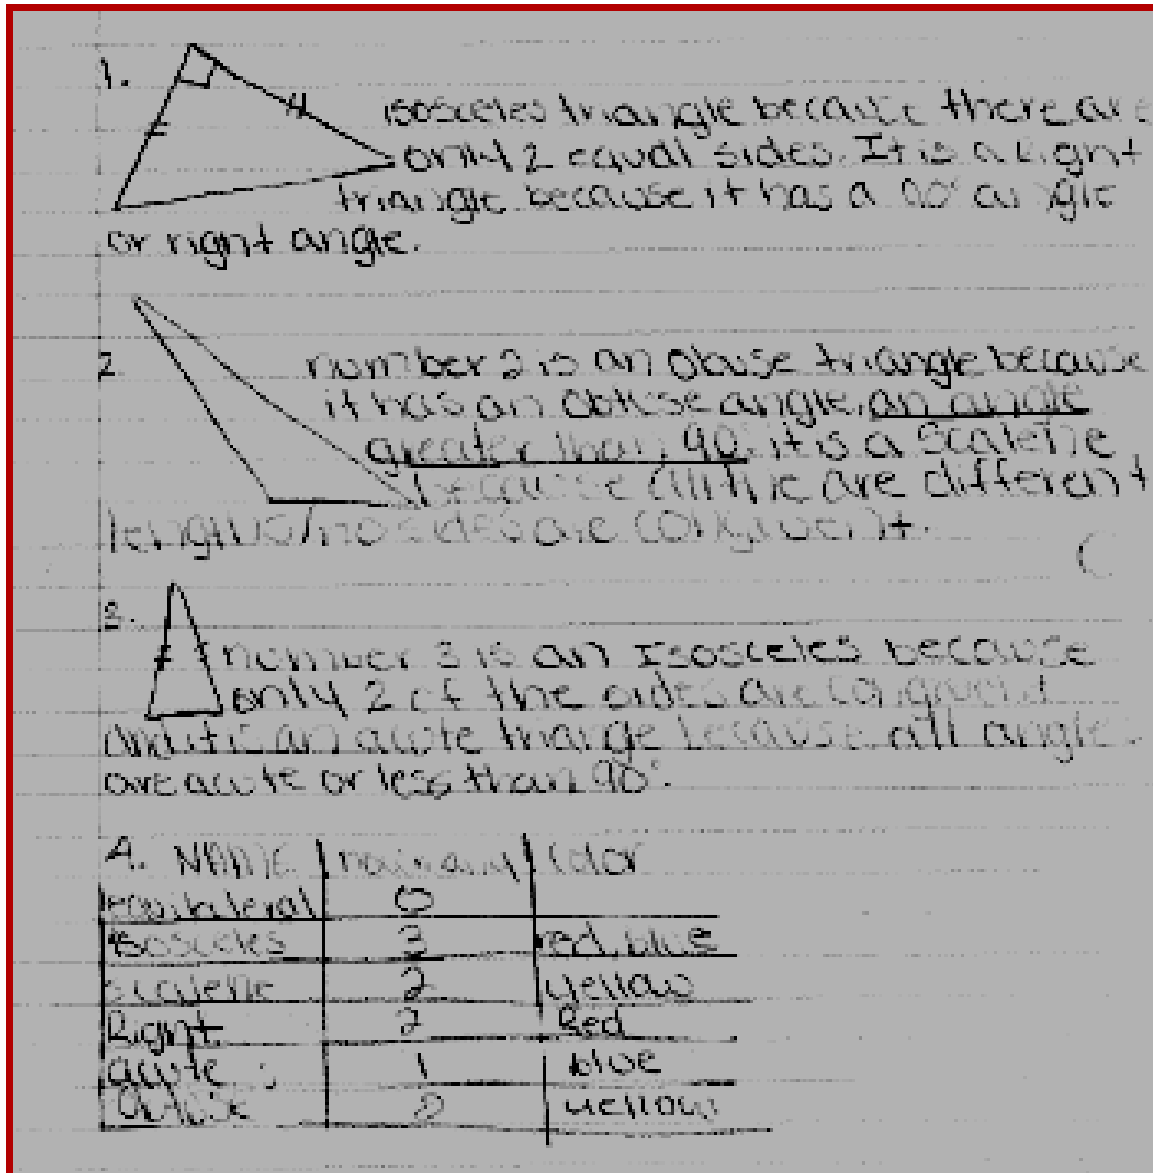 1.
isosceles triangle because there are
only 2 equal sides. It is a Right
triangle because it has a 90° angle
or right angle.
2
number 2 is an Obuse triangle because
it has an obtuse angle, an angle
greater than 90° it is a Scalene
because all the are different
lengths/no sides are congruent.
3.
number 3 is an Isosceles because
only 2 of the sides are congruent
and it is an acute triange because all angles
are acute or less than 90°.
4. NAME how many color
equilateral 0
isosceles 3 red, blue
scalene 2 yellow
Right 2 Red
acute 1 blue
obtuse yellow